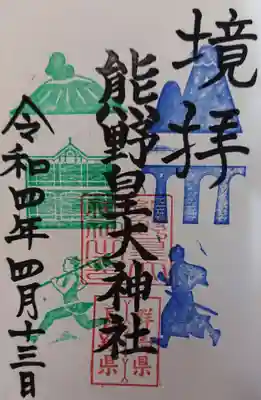 境拝
熊野皇大神社
令和四年四月十三日